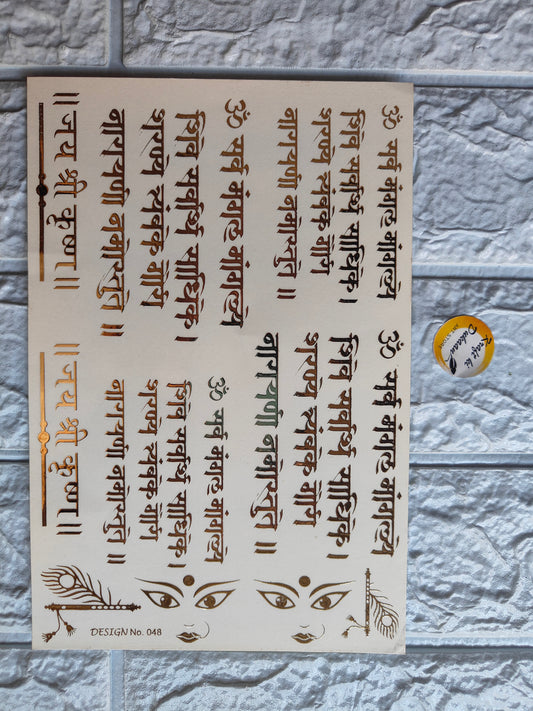 ॐ सर्व मंगल मांगल्ये
शिव सर्वार्थ साधिके ।
शरण्ये त्र्यंबके गौरी
नारायणी नमोस्तुते ॥
ॐ सर्व मंगल मांगल्ये
शिव सर्वार्थ साधिके ।
शरण्ये त्र्यंबके गौरी
नारायणी नमोस्तुते ॥
॥ जय श्री कृष्ण ॥
ॐ सर्व मंगल मांगल्ये
शिव सर्वार्थ साधिके ।
शरण्ये त्र्यंबके गौरी
नारायणी नमोस्तुते ॥
ॐ सर्व मंगल मांगल्ये
शिव सर्वार्थ साधिके ।
शरण्ये त्र्यंबके गौरी
नारायणी नमोस्तुते ॥
॥ जय श्री कृष्ण ॥
DESIGN No. 048
Kraft ki
Dukaan